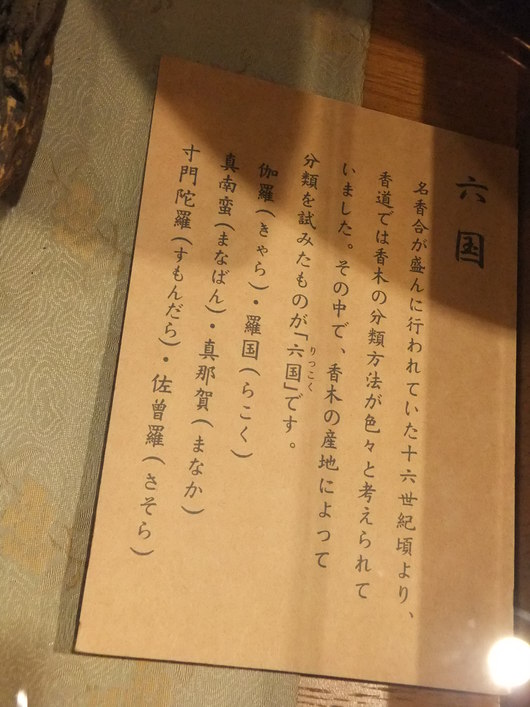 六国
名香合が盛んに行われていた十六世紀頃より、
香道では香木の分類方法が色々と考えられて
いました。その中で、香木の産地によって
分類を試みたものが「六国」です。
りっこく
伽羅(きゃら)・羅国(らこく)
真南蛮(まなばん)・真那賀(まなか)
寸門陀羅(すもんだら)・佐曾羅(さそら)